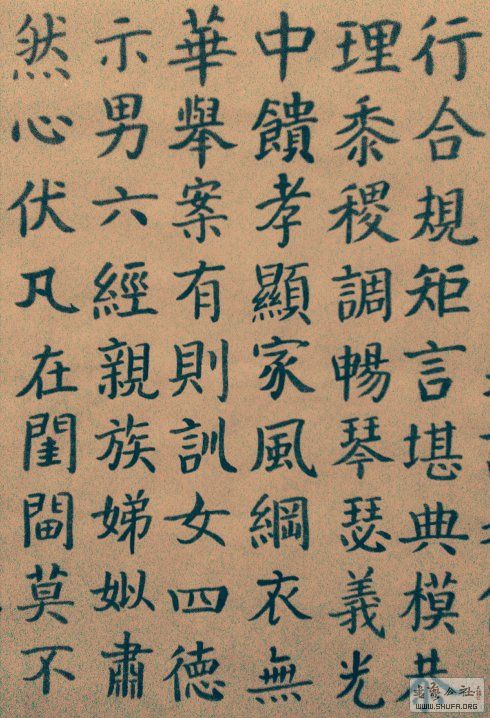 行合規矩言堪典模共
理黍稷調暢琴瑟義光
中饋孝顯家風綱衣無
華舉案有則訓女四德
示男六經親族娣姒肅
然心伏凡在閨閫莫不
WWW.SHUFA.ORG